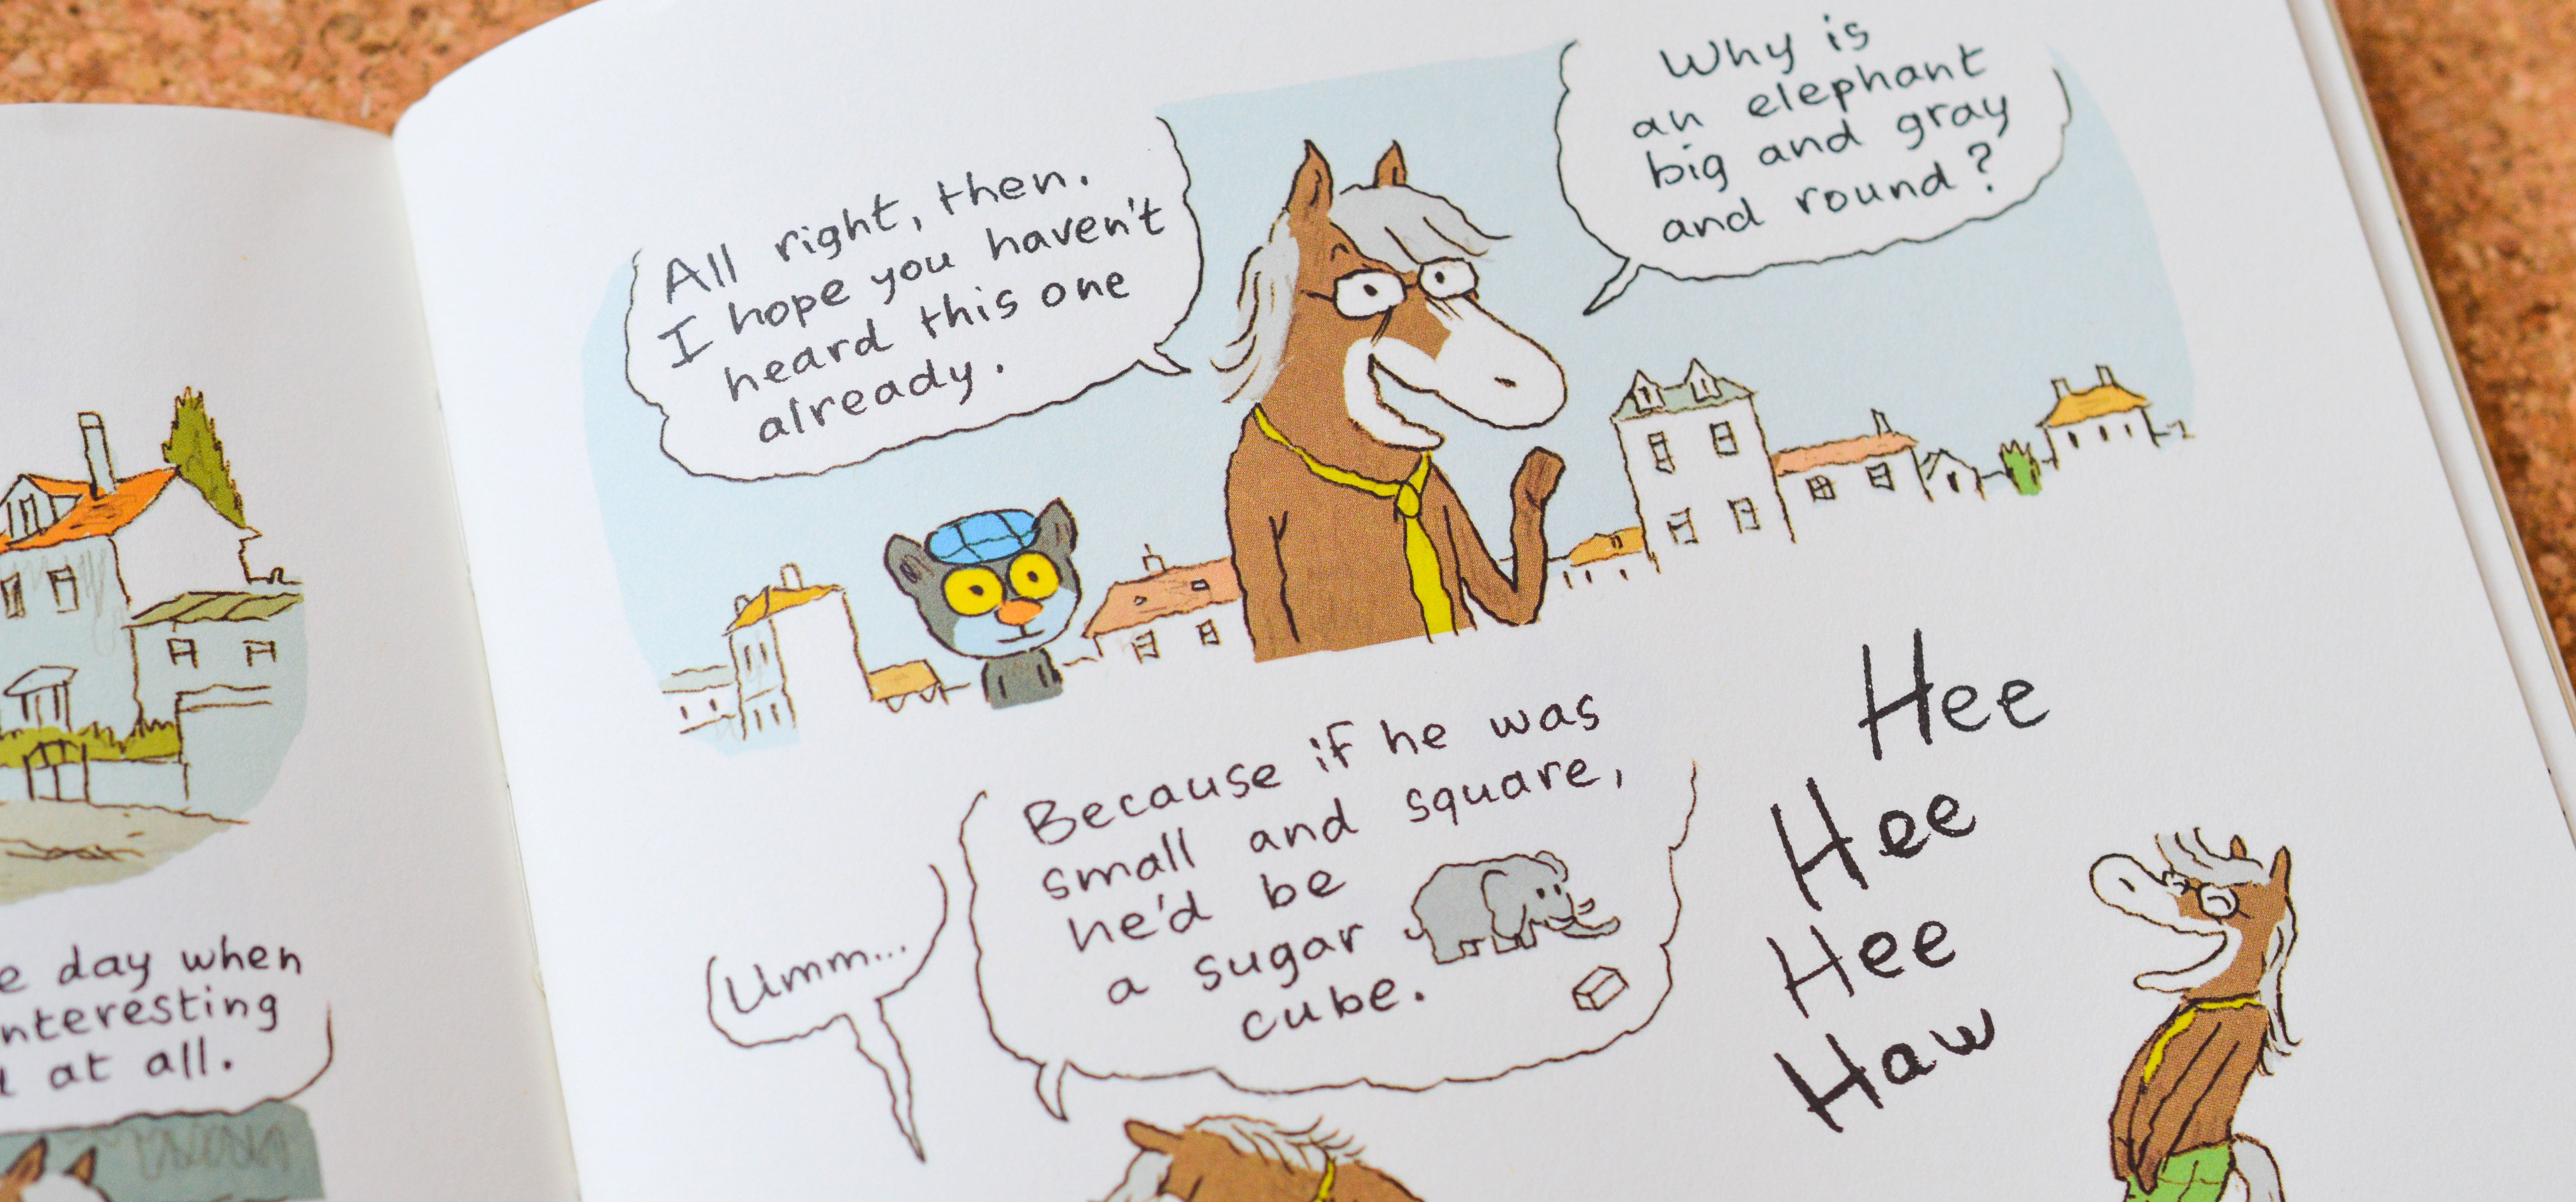 day when
interesting
at all.
All right, then.
I hope you haven't
heard this one
already.
Why is
an elephant
big and gray
and round?
Umm...
Because if he was
small and square,
he'd be
a sugar
cube.
Hee
Hee
Hee
Haw